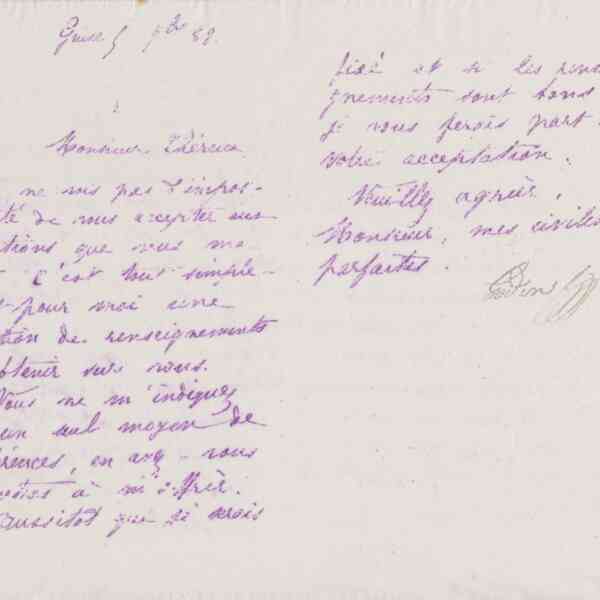 Guise 5 7bre 82.
Monsieur Théreux
ne suis pas l'impos-
té de vous accepter aux
tions que vous me
c'est tout simple-
pour moi une
tion de renseignements
obtenir sur vous.
Vous ne m'indiquez
un seul moyen de
érences, en avez-vous
à m'offrir.
aussitot que je serais
fixé et si les rensei
gnements sont bons
je vous ferois part
votre acceptation.
Veuillez agréer,
Monsieur, mes civilit
parfaites.
Godin